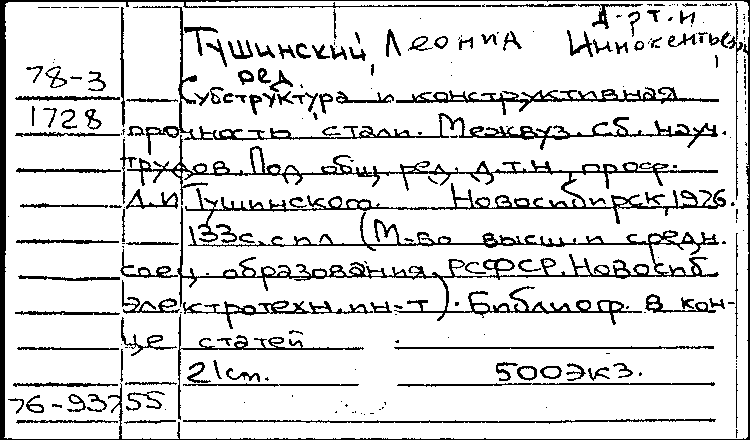 д-р т. н
Тушинский, Леонид Иннокентьевич,
78-3 ред.
Субструктура и конструктивная
1728 прочность стали. Межвуз. сб. науч.
трудов. Под общ. ред. д.т.н, проф.
Л.И Тушинского. Новосибирск, 1976.
133с. с ил (М-во высш. и средн.
спец. образования РСФСР. Новосиб
электротехн. ин-т). Библиогр. в кон-
це статей
21 см. 500 экз.
76-93755